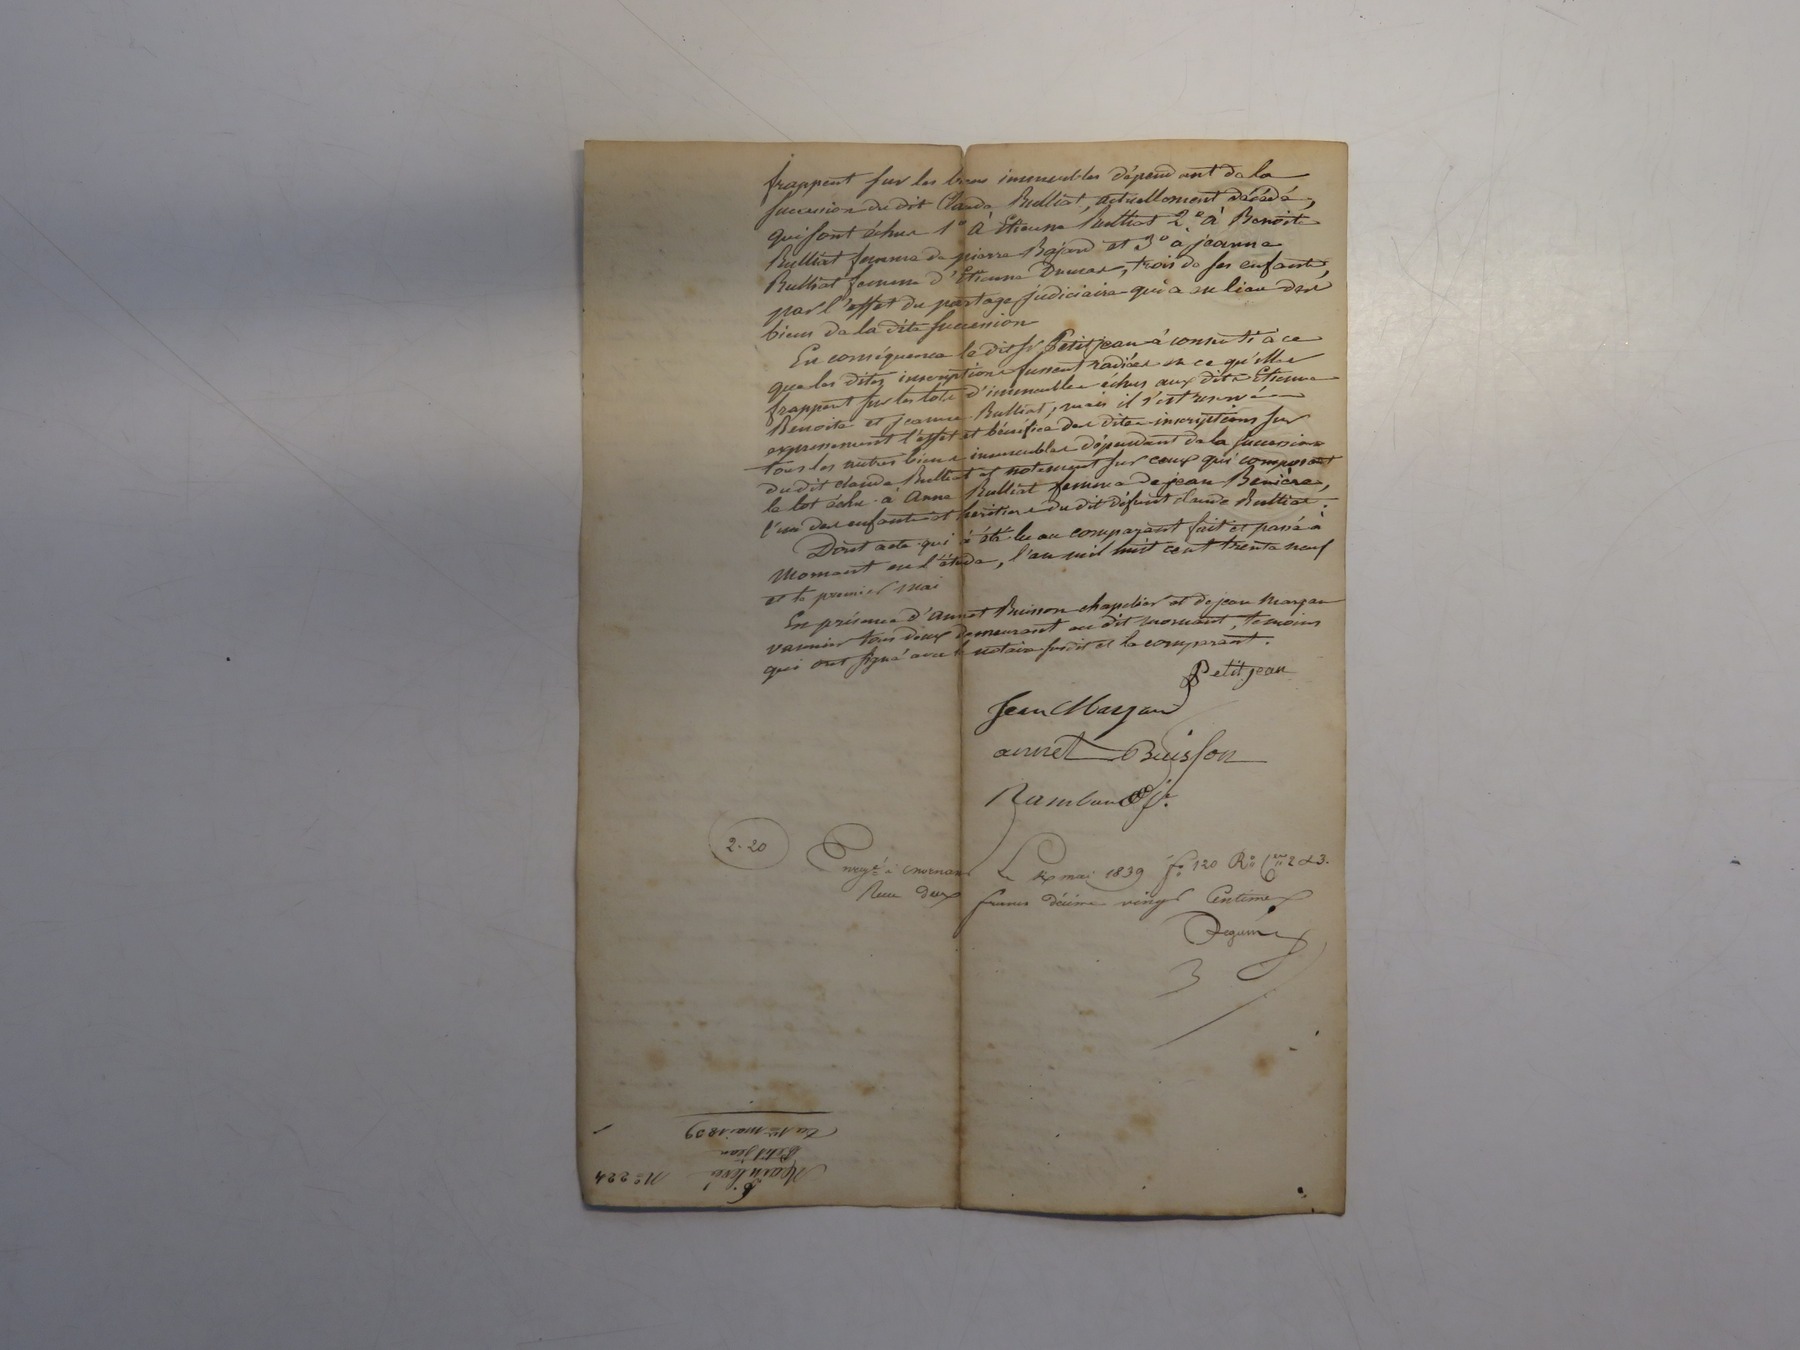 frappent sur les biens immeubles dépendant de la
succession du dit Claude Bulliat, actuellement décédé,
qui sont échus 1° à Etienne Bulliat 2° à Benoite
Bulliat femme de pierre Bajard et 3° a jeanne
Bulliat femme d'Etienne Dumas, trois de ses enfants,
par l'effet du partage judiciaire qui a eu lieu des
biens de la dite succession
En conséquence le dit Sr Petitjean à consenti à ce
que les dites inscriptions fussent radiées en ce qu'elles
frappent sur les lots d'immeubles échus aux dits Etienne
Benoite et jeanne Bulliat, mais il s'est reservé
expressement l'effet et bénéfice des dites inscriptions sur
tous les autres biens immeubles dépendant de la succession
du dit claude Bulliat et notament sur ceux qui composent
le lot échu à Anne Bulliat femme de jean Benière,
l'un des enfants et heritiers du dit défunt claude Bulliat.
Dont acte qui à été lu au comparant fait et passé à
Mornant en l'étude, l'an mil huit cent trente neuf
et le premier Mai
En présence d'annet Buisson chapelier et de jean Marjan
vannier tous deux demeurant au dit mornant, témoins
qui ont signé avec le notaire susdit et le comparant.
Petitjean
Jean Marjan
annet Buisson
2.20
Enregé à mornant Le mai 1839 fo 120 Ro Ces 2 & 3.
Recu deux francs décime vingt Centimes
3
N° 224
Mainlevée
Petitjean
Du 1er mai 1839